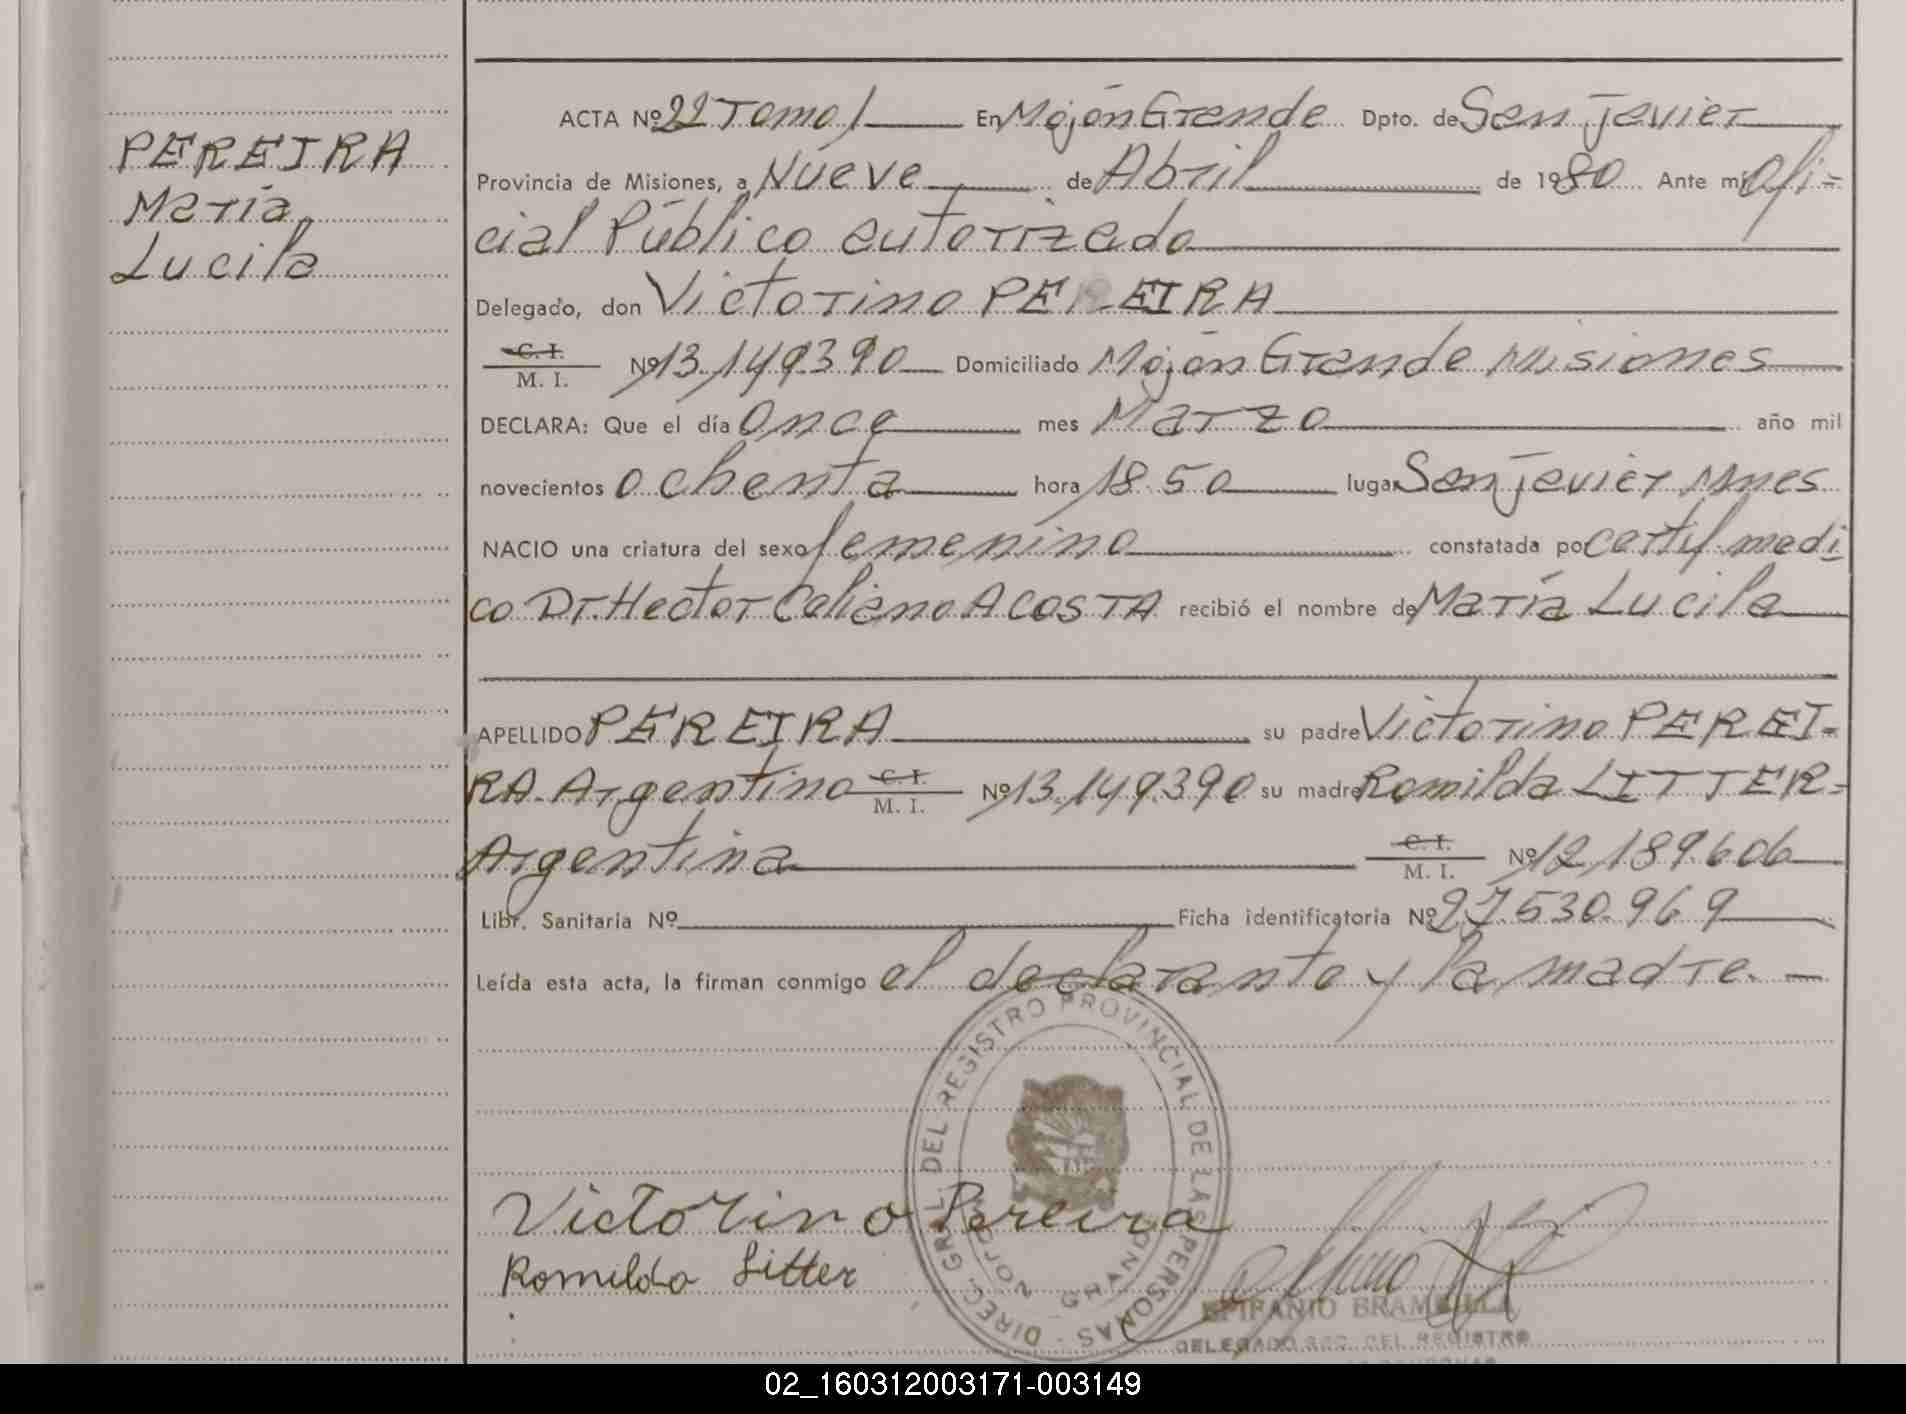 PEREIRA
María
Lucila
ACTA Nº 22 Tomo 1 En Mojón Grande Dpto. de San Javier
Provincia de Misiones, a Nueve de Abril de 1980 Ante mí Ofi-
cial Público autorizado
Delegado, don Victorino PEREIRA
C. I.
M. I. Nº 13.149.390 Domiciliado Mojón Grande Misiones
DECLARA: Que el día Once mes Marzo año mil
novecientos ochenta hora 18.50 lugar San Javier Mnes
NACIO una criatura del sexo femenino constatada por certif. medi-
co Dr. Hector Celiano ACOSTA recibió el nombre de María Lucila
APELLIDO PEREIRA su padre Victorino PEREI-
RA-Argentino C. I. M. I. Nº 13.149.390 su madre Romilda LITTER-
Argentina C. I. M. I. Nº 12.189.606
Libr. Sanitaria Nº Ficha identificatoria Nº 27.530.969
Leída esta acta, la firman conmigo el declarante y la madre.-
DIREC. GRAL. DEL REGISTRO PROVINCIAL DE LAS PERSONAS
MOJON GRANDE
Victorino Pereira
Romilda Litter
EPIFANIO
DELEGADO SEC. DEL REGISTRO
02_160312003171-003149